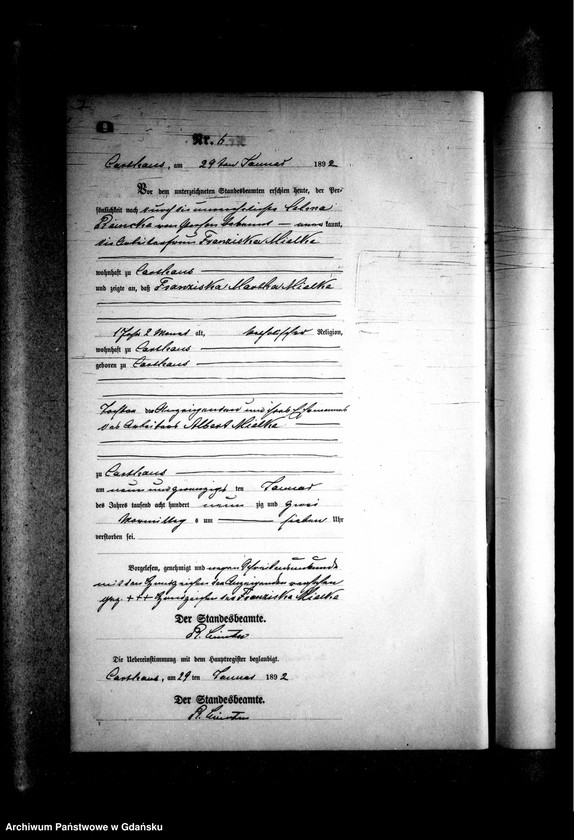 Nr. 6
Carthaus, am 29 ten Januar 1892
Vor dem unterzeichneten Standesbeamten erschien heute, der Per-
sönlichkeit nach durch die unverehelichte Selma
von Person bekannt — kannt,
die Arbeiterfrau Franziska Mielke
wohnhaft zu Carthaus
und zeigte an, daß Franziska Martha Mielke
1 Jahr 2 Monat alt, katholischer Religion,
wohnhaft zu Carthaus
geboren zu Carthaus
Tochter der Anzeigenden und ihres Ehemannes
des Arbeiters Albert Mielke
zu Carthaus
am neun und zwanzigsten ten Januar
des Jahres tausend acht hundert neun zig und zwei
Vormittags um sieben Uhr
verstorben sei.
Vorgelesen, genehmigt und wegen Schreibensunkunde
mit dem Handzeichen der Anzeigenden versehen
gez. +++ Handzeichen der Franziska Mielke
Der Standesbeamte.
Die Uebereinstimmung mit dem Hauptregister beglaubigt.
Carthaus, am 29 ten Januar 1892
Der Standesbeamte.
Archiwum Państwowe w Gdańsku